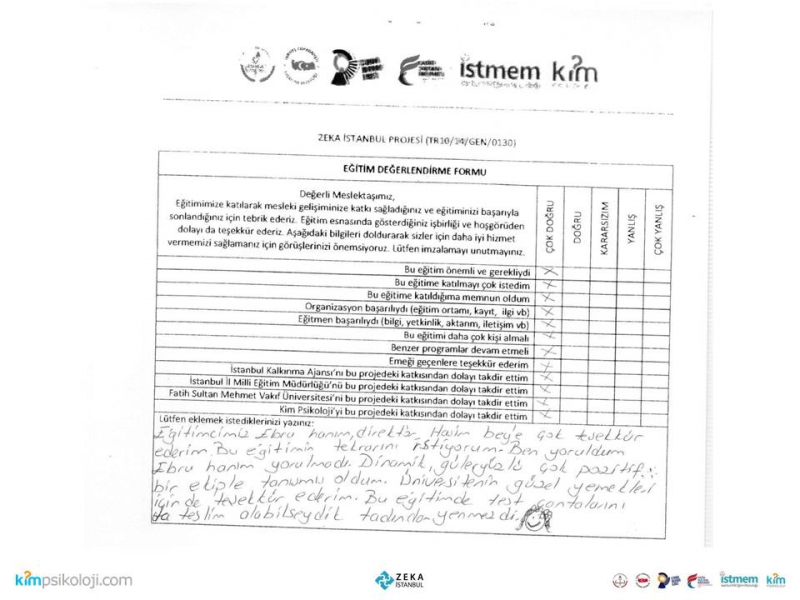 istmem kim
ZEKA İSTANBUL PROJESİ (TR10/14/GEN/0130)
EĞİTİM DEĞERLENDİRME FORMU
Değerli Meslektaşımız,
Eğitimimize katılarak mesleki gelişiminize katkı sağladığınız ve eğitiminizi başarıyla
sonlandığınız için tebrik ederiz. Eğitim esnasında gösterdiğiniz işbirliği ve hoşgörüden
dolayı da teşekkür ederiz. Aşağıdaki bilgileri doldurarak sizler için daha iyi hizmet
vermemizi sağlamanız için görüşlerinizi önemsiyoruz. Lütfen imzalamayı unutmayınız.
ÇOK DOĞRU
DOĞRU
KARARSIZIM
YANLIŞ
ÇOK YANLIŞ
Bu eğitim önemli ve gerekliydi
Bu eğitime katılmayı çok istedim
Bu eğitime katıldığıma memnun oldum
Organizasyon başarılıydı (eğitim ortamı, kayıt, ilgi vb)
Eğitmen başarılıydı (bilgi, yetkinlik, aktarım, iletişim vb)
Bu eğitimi daha çok kişi almalı
Benzer programlar devam etmeli
Emeği geçenlere teşekkür ederim
İstanbul Kalkınma Ajansı'nı bu projedeki katkısından dolayı takdir ettim
İstanbul İl Milli Eğitim Müdürlüğü'nü bu projedeki katkısından dolayı takdir ettim
Fatih Sultan Mehmet Vakıf Üniversitesi'ni bu projedeki katkısından dolayı takdir ettim
Kim Psikoloji'yi bu projedeki katkısından dolayı takdir ettim
Lütfen eklemek istediklerinizi yazınız:
Eğitimcimiz Ebru hanım, direktör Hasim bey'e çok teşekkür
ederim. Bu eğitimin tekrarını istiyorum. Ben yoruldum
Ebru hanım yorulmadı. Dinamik, güleryüzlü çok pozitif
bir ekiple tanımış oldum. Üniversitenin güzel yemekleri
için de teşekkür ederim. Bu eğitimde test çantalarını
da teslim alabilseydik tadından yenmezdi.
kimpsikoloji.com
ZEKA
İSTANBUL
istmem
kim